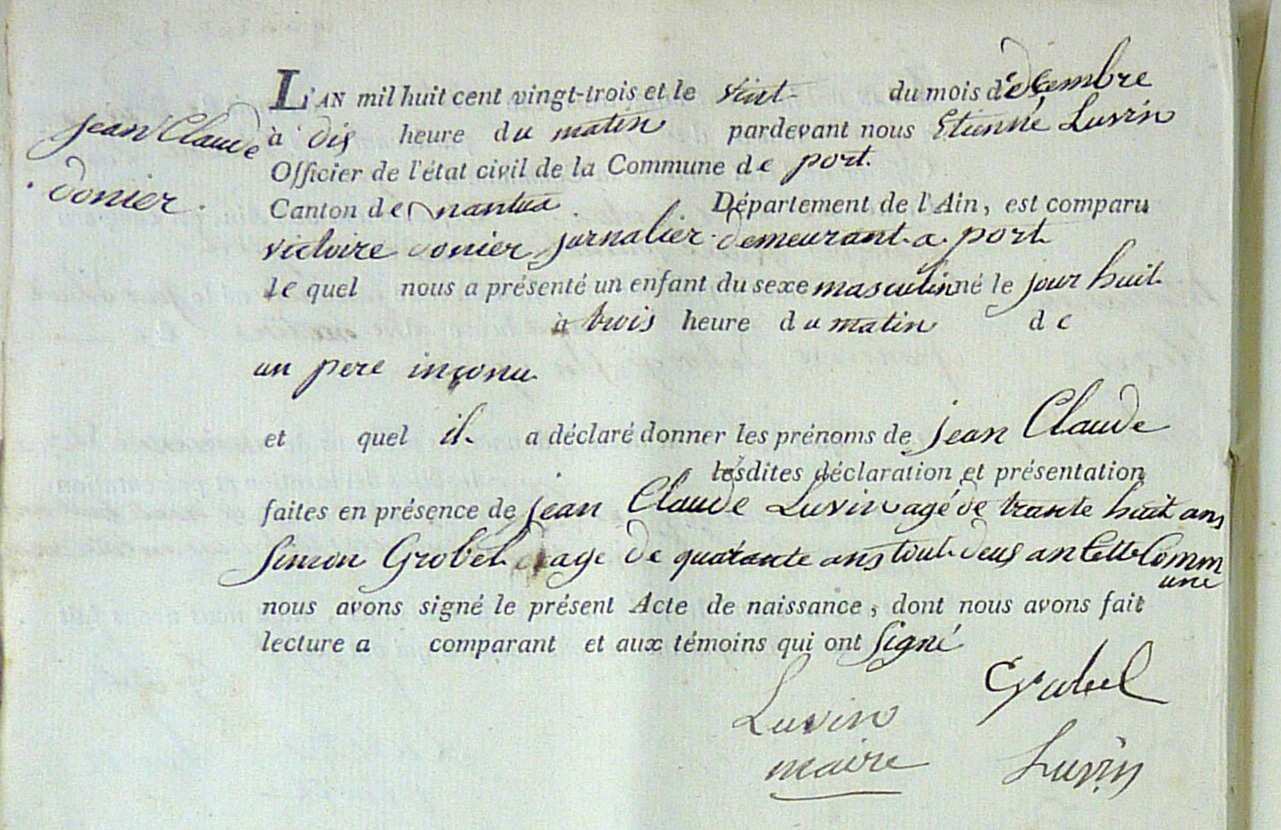 Jean Claude
donier.
L'AN mil huit cent vingt-trois et le vint du mois de decembre
à dis heure du matin pardevant nous Etienne Luvin
Officier de l'état civil de la Commune de port.
Canton de nantua Département de l'Ain, est comparu
victoire donier jurnalier demeurant a port
le quel nous a présenté un enfant du sexe masculin né le jour huit
à trois heure du matin de
un pere inconu
et quel il a déclaré donner les prénoms de jean Claude
lesdites déclaration et présentation
faites en présence de jean Claude Luvin agé de trante huit ans
Simon Grobel age de quarante ans tout deus an Cette Comm
une
nous avons signé le présent Acte de naissance, dont nous avons fait
lecture a comparant et aux témoins qui ont Signé
Grobel
Luvin
maire Luvin